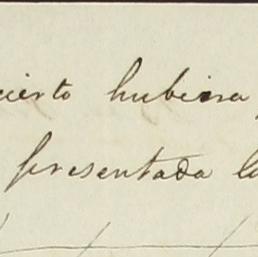 cierto hubiera
presentada la